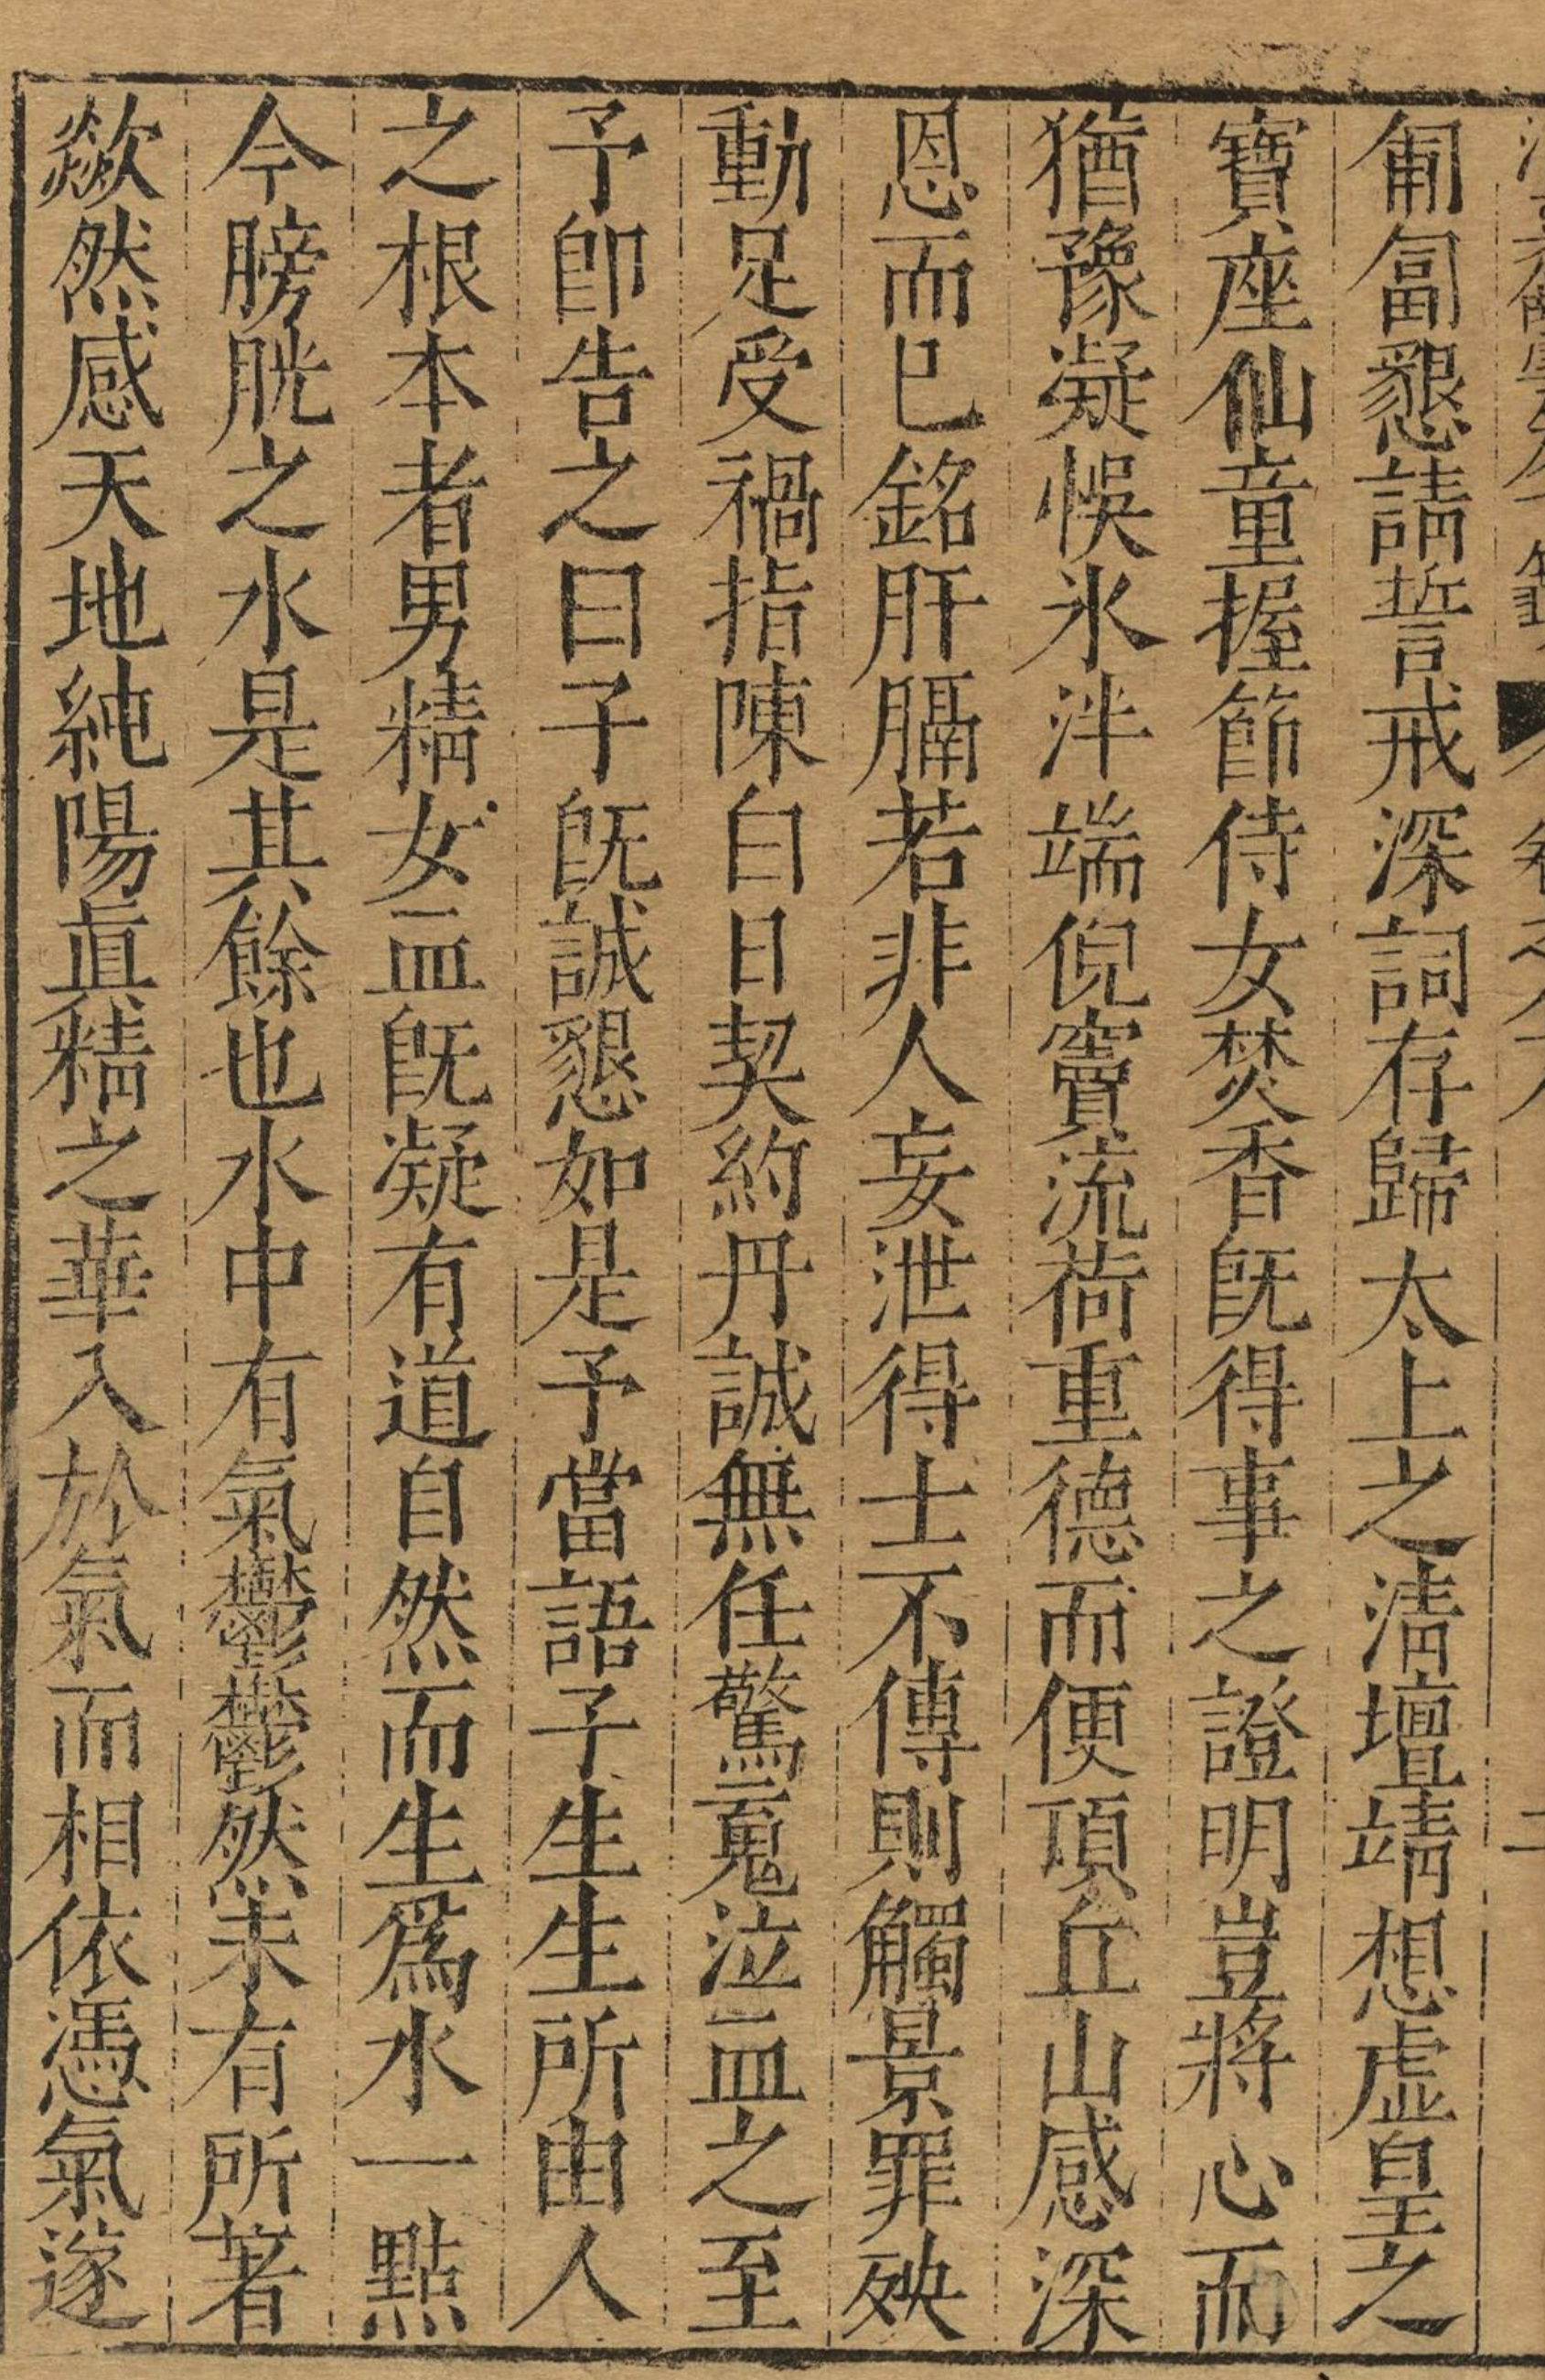 匍匐懇請誓戒深詞存歸太上之清壇靖想虛皇之
寶座仙童握節侍女焚香既得事之證明豈將心而
猶豫凝悞氷泮端倪竇流荷重德而便項丘山感深
恩而已銘肝膈若非人妄泄得士不傳則觸景罪殃
動足受禍指陳白日契約丹誠無任驚䰟泣血之至
予卽告之曰子旣誠懇如是予當語子生生所由人
之根本者男精女血旣凝有道自然而生爲水一點
今膀胱之水是其餘也水中有氣鬱鬱然未有所著
歘然感天地純陽眞精之華入於氣而相依憑氣遂